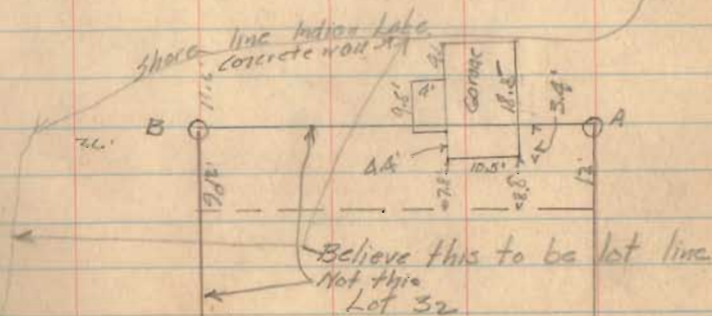 Shore line Indian Lake
Concrete wall
11.5'
4.6'
Garage
18.5'
9.5'
3.4'
B
A
4.4'
10.5'
7.8'
8.8'
12'
9.12'
Believe this to be lot line
Not this
Lot 32